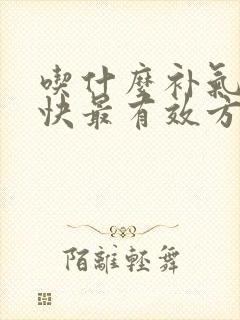 喫什麼补氣
快最有效方
陌離輕舞